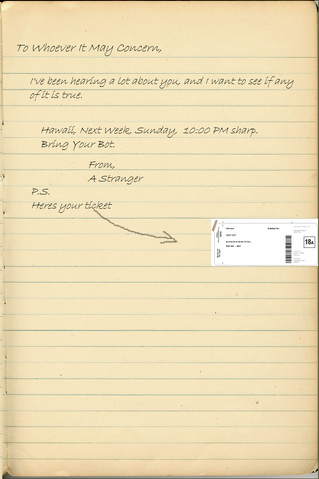 To Whoever It May Concern,
I've been hearing a lot about you, and I want to see if any
of it is true.
Hawaii, Next Week, Sunday, 10:00 PM sharp.
Bring Your Bot.
From,
A Stranger
P.S.
Heres your ticket
18A